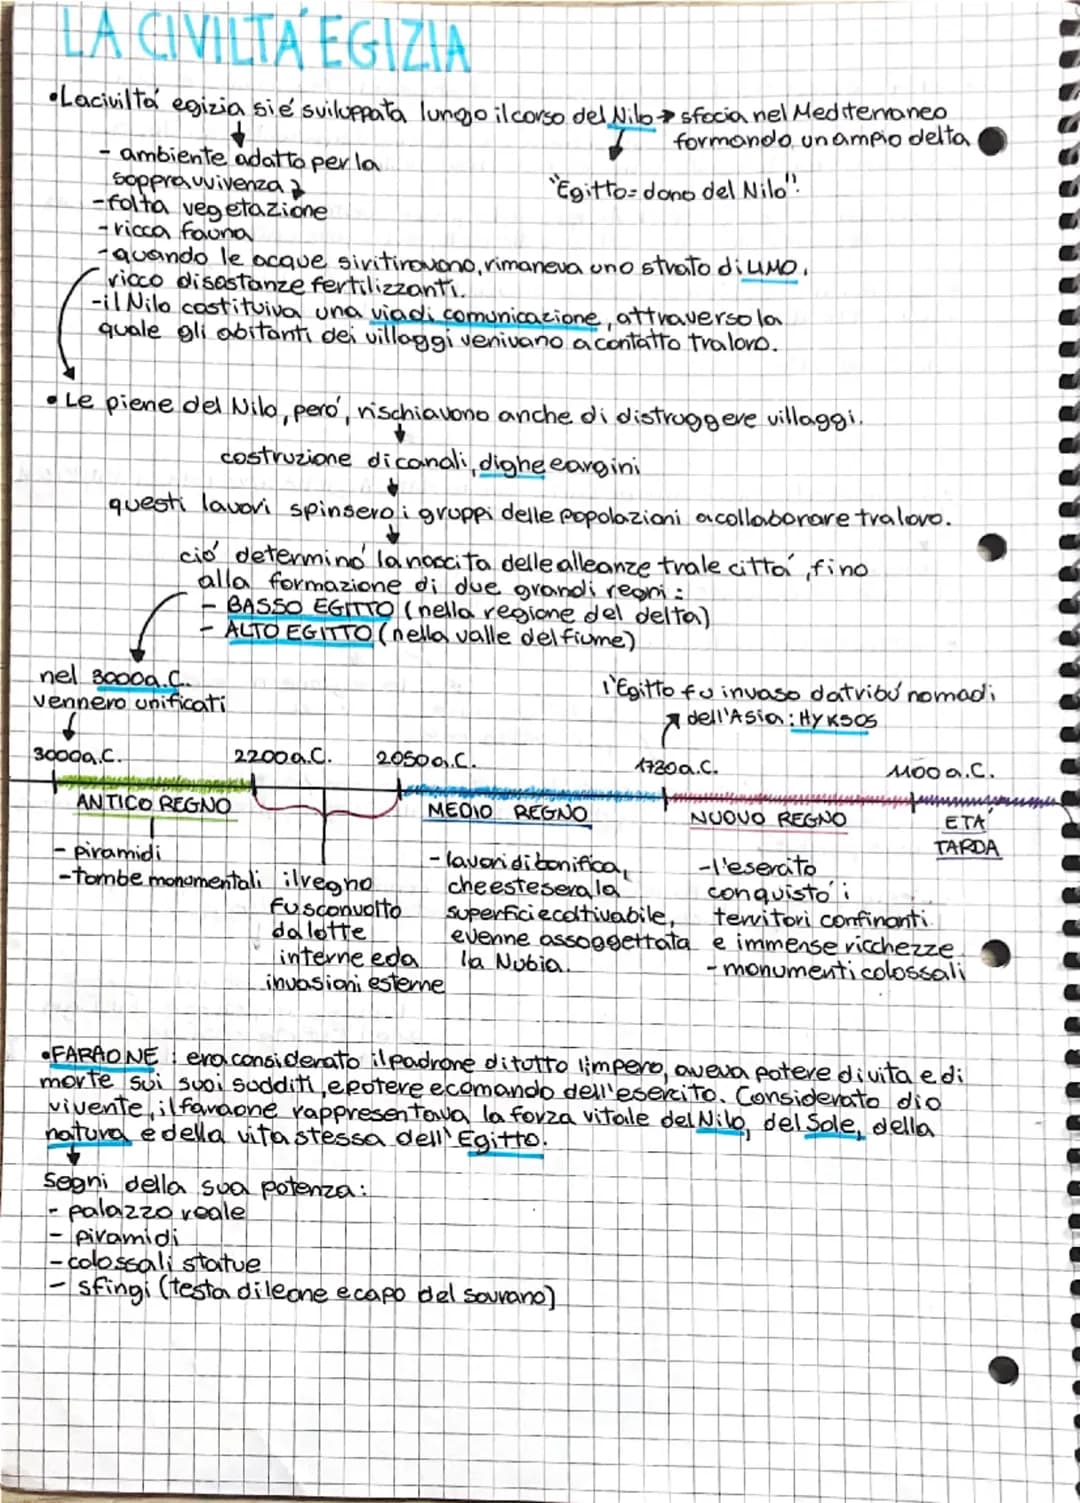 LA CIVILTÁ EGIZIA
•La civiltá egizia si é sviluppata lungo il corso del Nilo → sfocia nel Mediterraneo
formando un ampio delta
- ambiente adatto per la
soppravvivenza
"Egitto= dono del Nilo".
-folta vegetazione
-ricca fauna
-quando le acque si ritiravano, rimaneva uno strato di LIMO,
ricco di sostanze fertilizzanti.
-il Nilo costituiva una via di comunicazione, attraverso la
quale gli abitanti dei villaggi venivano a contatto tra loro.
• Le piene del Nilo, peró, rischiavono anche di distruggere villaggi.
costruzione di canali, dighe e argini
questi lavori spinsero i gruppi delle popolazioni a collaborare tra loro.
ció determinó la nascita delle alleanze tra le cittá, fino
alla formazione di due grandi regni:
- BASSO EGITTO (nella regione del delta)
- ALTO EGITTO (nella valle del fiume)
nel 3000a.C.
vennero unificati
l'Egitto fu invaso da tribú nomadi
dell'Asia: HYKSOS
3000a.C. 2200a.C. 2050a.C. 1720a.C. 1100 a.C.
ANTICO REGNO MEDIO REGNO NUOVO REGNO ETÁ
TARDA
- piramidi
-tombe monumentali
il regno
fu sconvolto
da lotte
interne e da
invasioni esterne
-lavori di bonifica,
che estesera la
superficie coltivabile,
e venne assoggettata
la Nubia.
-l'esercito
conquistó i
territori confinanti
e immense ricchezze
-monumenti colossali
•FARAONE : era considerato il padrone di tutto l'impero, aveva potere di vita e di
morte sui suoi sudditi, e potere e comando dell'esercito. Considerato dio
vivente, il faraone rappresentava la forza vitale del Nilo, del Sole, della
natura e della vita stessa dell'Egitto.
Segni della sua potenza:
- palazzo reale
- piramidi
-colossali statue
- sfingi (testa di leone e capo del sovrano)